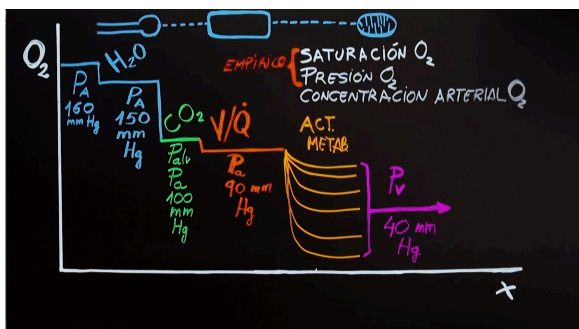 O₂
H₂O
EMPÍRICO
SATURACIÓN O₂
PRESIÓN O₂
CONCENTRACIÓN ARTERIAL O₂
PA
160
mmHg
PA
150
mm
Hg
CO₂
Palv
Pa
100
mm
Hg
V/Q̇
Pa
90 mm
Hg
ACT.
METAB
Pv
40 mm
Hg
X